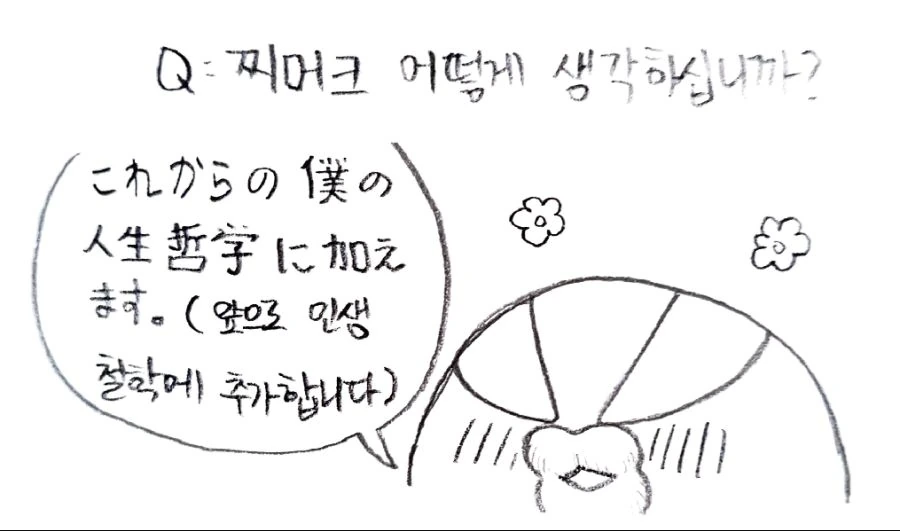 Q: 찌머크 어떻게 생각하십니까?
これからの僕の
人生哲学に加え
ます。(앞으로 인생
철학에 추가합니다)